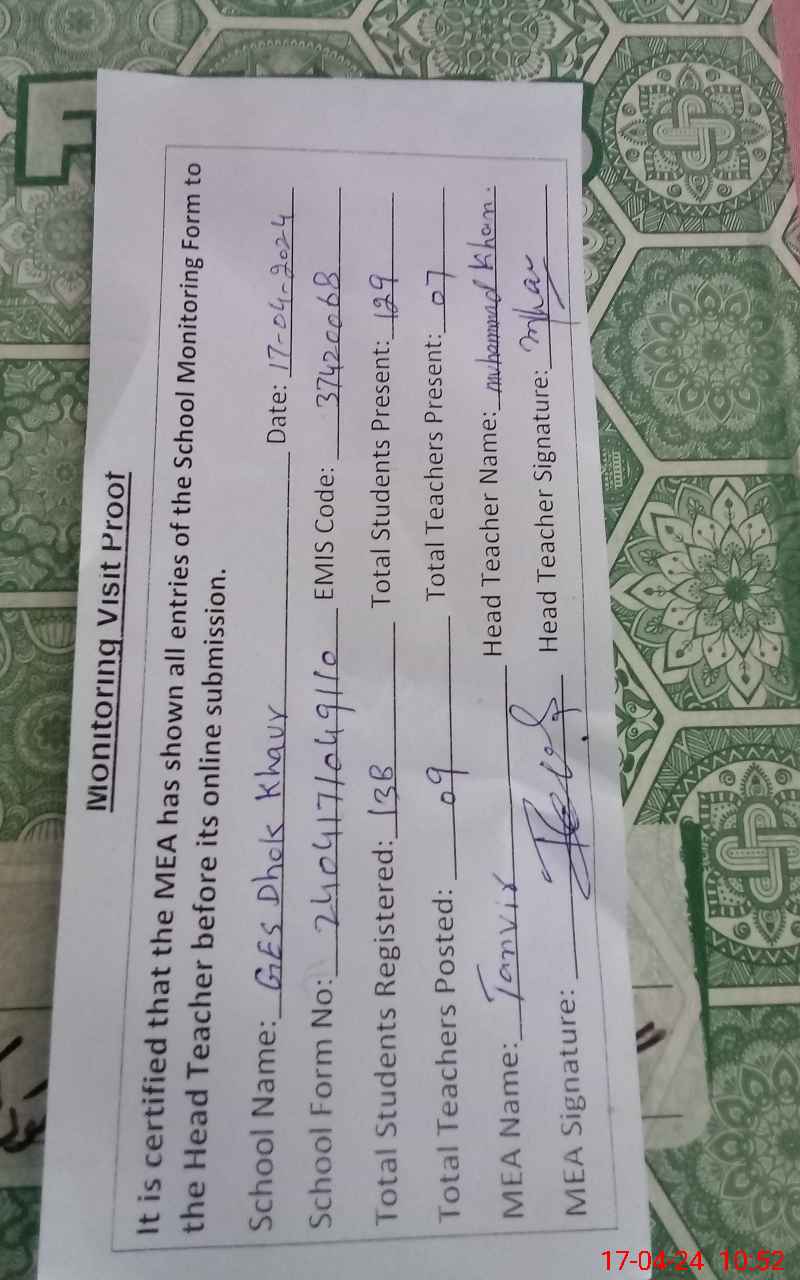 Monitoring Visit Proof
It is certified that the MEA has shown all entries of the School Monitoring Form to
the Head Teacher before its online submission.
School Name: GES Dhok Khaur Date: 17-04-2024
School Form No: 2404171049110 EMIS Code: 37420068
Total Students Registered: 138 Total Students Present: 129
Total Teachers Posted: 09 Total Teachers Present: 07
MEA Name: Tanvir Head Teacher Name: muhammad Khan.
MEA Signature: Head Teacher Signature:
17-04-24 10:52